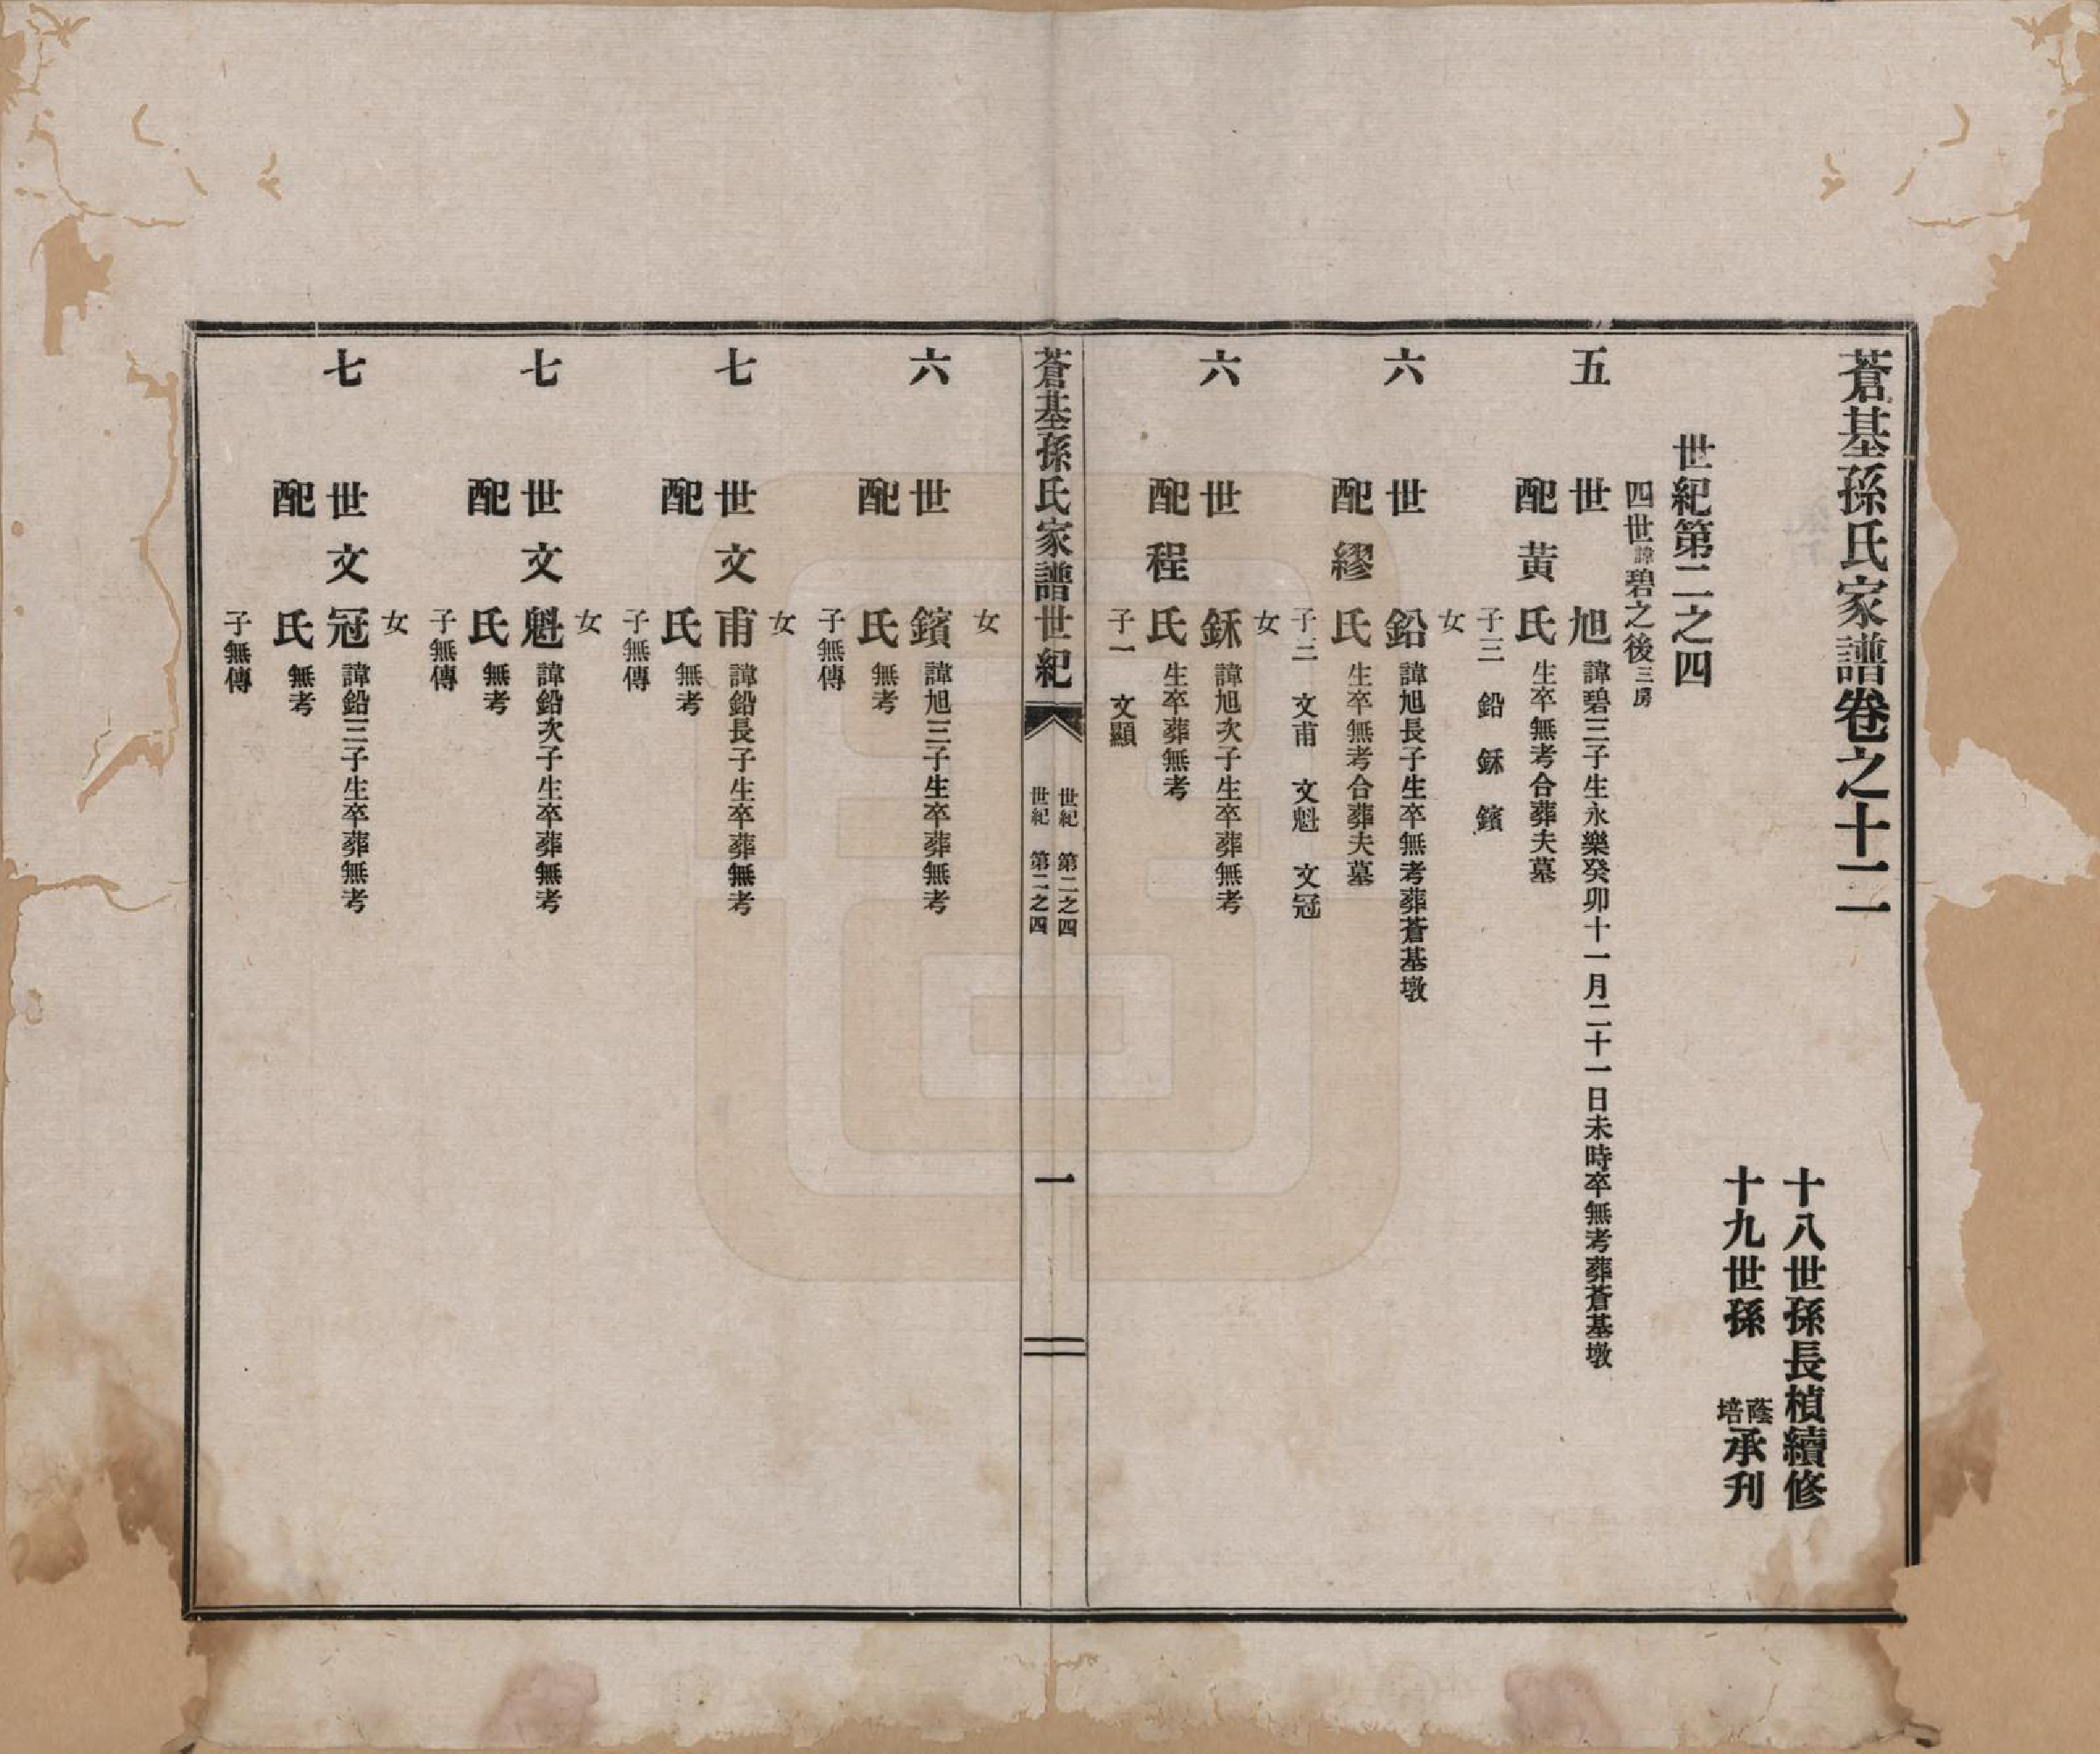 蒼基孫氏家譜卷之十二
十八世孫長楨續修
十九世孫 蔭培承刋
世紀第二之四
四世諱碧之後三房
五世旭 諱碧三子生永樂癸卯十一月二十一日未時卒無考葬蒼基墩
配黃氏 生卒無考合葬夫墓
子三 鉛 鉌 鑌
女
六世鉛 諱旭長子生卒無考葬蒼基墩
配繆氏 生卒無考合葬夫墓
子三 文甫 文魁 文冠
女
六世鉌 諱旭次子生卒葬無考
配程氏 生卒葬無考
子一 文顯
蒼基孫氏家譜世紀
世紀 第二之四
世紀 第二之四
一
女
六世鑌 諱旭三子生卒葬無考
配 氏 無考
子無傳
女
七世文甫 諱鉛長子生卒葬無考
配 氏 無考
子無傳
女
七世文魁 諱鉛次子生卒葬無考
配 氏 無考
子無傳
女
七世文冠 諱鉛三子生卒葬無考
配 氏 無考
子無傳